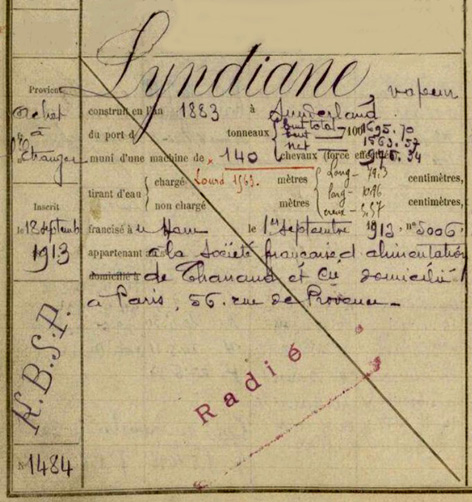 Lyndiane, vapeur
Provient
Achat
à
l'Etranger
construit en l'an 1883 à Sunderland.
du port de tonneaux { brut total 1695.70
brut 1563.57
net 945.34
/100
muni d'une machine de 140 chevaux (force effective)
Lourd 1563.
tirant d'eau { chargé mètres centimètres,
non chargé mètres centimètres,
Long 79.3
larg 10.96
creux 5.57
Inscrit
le 18 septembre
1913
francisé à u Havre le 1er septembre 1913 n° 5006.
appartenant à la Société française d'alimentation
domicilié à de Chanaud et Cie domicilié
à Paris, 56. rue de Provence
K.B.S.P.
Radié
N° 1484